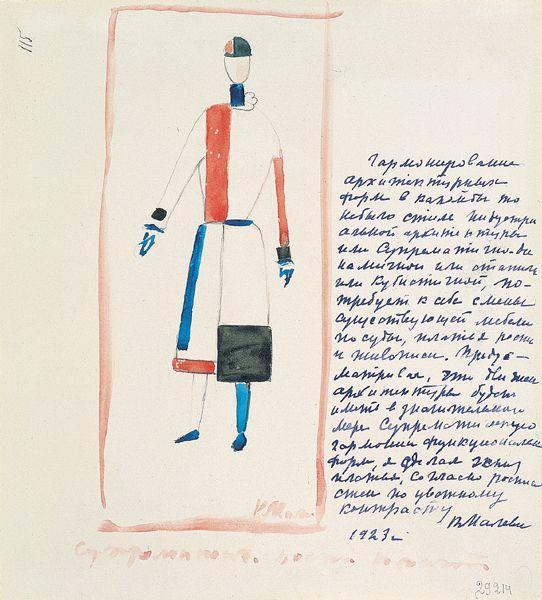 115
Гармонирование
архитектурных
форм в какой бы то
небыло стиле индустри
альной архитектуры
или Супрематично-ди
намичной или статич
или Кубистичной, по-
требует к себе смены
существующей мебели
посуды, платья росписи
и живописи. Преду-
матривая, что движен
архитектуры будет
иметь в значительной
мере Супрематическую
гармонию функциональн
форм, я сделал эскиз
платья, согласно росписи
стен по цветному
контрасту
КМалеви
1923 г
К Мал
Супрематия.
29214